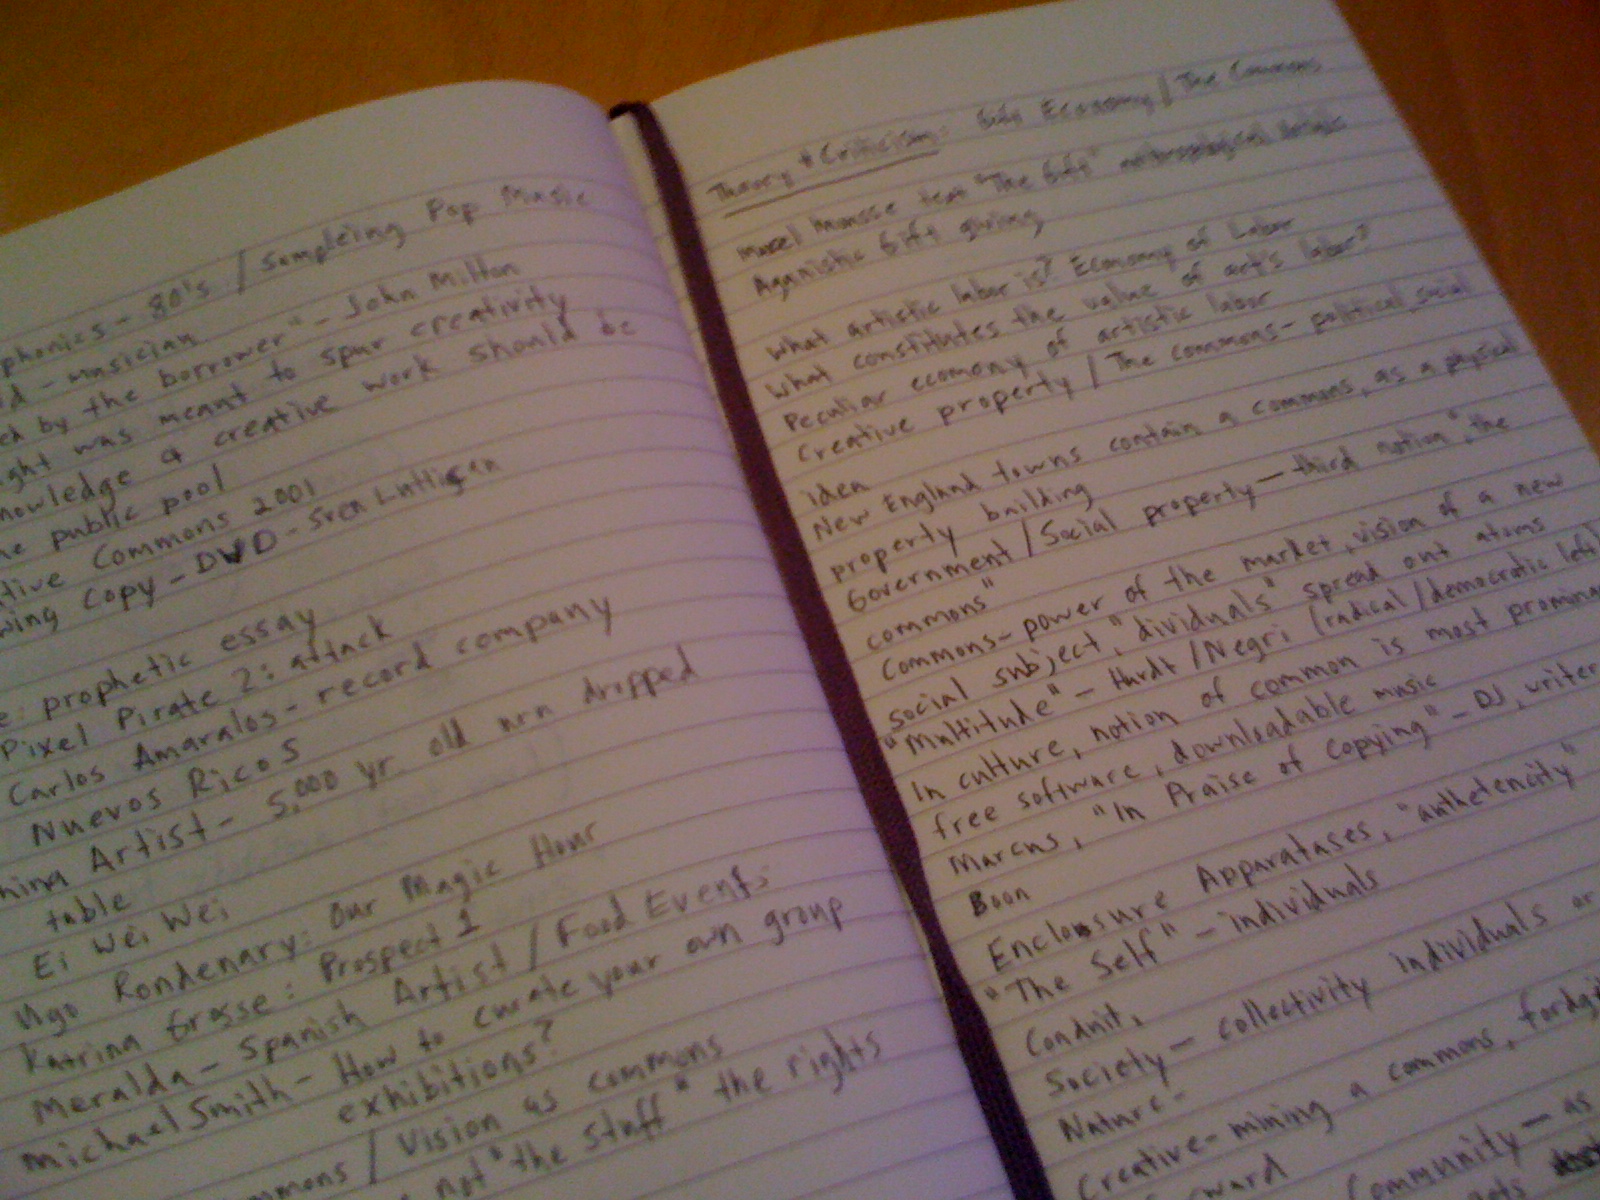 phonics - 80's / Sampleing Pop Music
d - musician
ed by the borrower" - John Milton
ght was meant to spur creativity
nowledge & creative work should be
he public pool
tive Commons 2001
wing Copy - DVD - Sven Luttigen
e: prophetic essay
Pixel Pirate 2: attack
Carlos Amaralos - record company
Nuevos Ricos
hina Artist - 5,000 yr. old urn dropped
table
Ei Wei Wei
Ugo Rondenary: Our Magic Hour
Katrina Grosse: Prospect 1
Meralda - Spanish Artist / Food Events
Michael Smith - How to curate your own group
exhibitions?
mmons / Vision as commons
not "the stuff" the rights
Theory + Criticism: Gift Economy / The Commons
Marcel Mousse text "The Gift" anthropological
Aganistic Gift giving
What artistic labor is? Economy of Labor
What constitutes the value of art's labor?
Peculiar ecomony of artistic labor
Creative property / The commons - political, social
iden
New England towns contain a commons, as a physical
property building
Government / Social property - third notion "the
commons"
Commons - power of the market, vision of a new
social subject, "dividuals" spread out atoms
"Multitude" - Hardt / Negri (radical / democratic left)
In culture, notion of common is most promina
free software, downloadable music
Marcus, "In Praise of Copying" - DJ, writer
Boon
Enclosure Apparatases, "authetencity"
"The Self" - individuals
Conduit,
Society - collectivity individuals or
Nature -
Creative - mining a commons,
ward Community - as